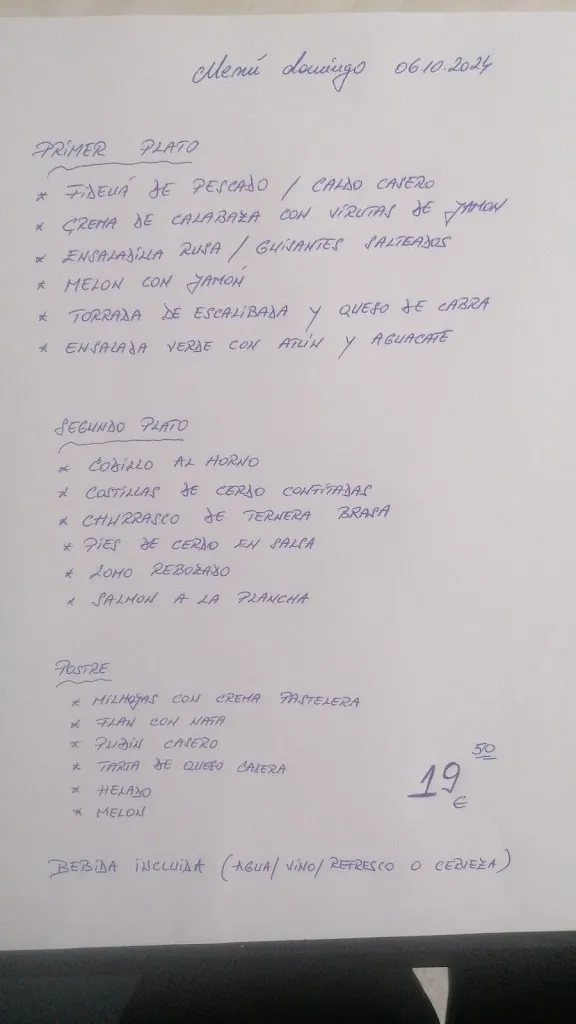 Menú domingo 06.10.2024
PRIMER PLATO
* FIDEUÁ DE PESCADO / CALDO CASERO
* CREMA DE CALABAZA CON VIRUTAS DE JAMON
* ENSALADILLA RUSA / GUISANTES SALTEADOS
* MELON CON JAMÓN
* TORRADA DE ESCALIBADA Y QUESO DE CABRA
* ENSALADA VERDE CON ATÚN Y AGUACATE
SEGUNDO PLATO
* CODILLO AL HORNO
* COSTILLAS DE CERDO CONFITADAS
* CHURRASCO DE TERNERA BRASA
* PIES DE CERDO EN SALSA
* LOMO REBOZADO
* SALMON A LA PLANCHA
POSTRE
* MILHOJAS CON CREMA PASTELERA
* FLAN CON NATA
* PUDIN CASERO
* TARTA DE QUESO CASERA
* HELADO
* MELON
19 50 €
BEBIDA INCLUIDA (AGUA/ VINO/ REFRESCO O CERVEZA)